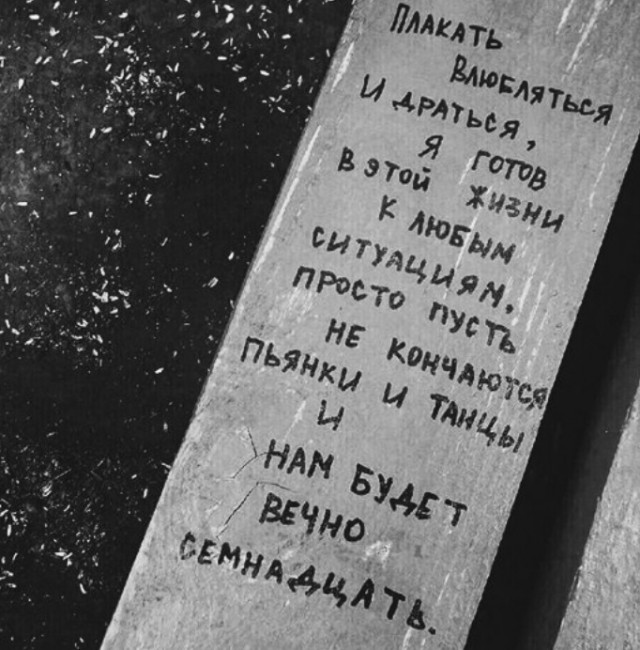 ПЛАКАТЬ
ВЛЮБЛЯТЬСЯ
И ДРАТЬСЯ,
Я ГОТОВ
В ЭТОЙ ЖИЗНИ
К ЛЮБЫМ
СИТУАЦИЯМ,
ПРОСТО ПУСТЬ
НЕ КОНЧАЮТСЯ
ПЬЯНКИ И ТАНЦЫ
И
НАМ БУДЕТ
ВЕЧНО
СЕМНАДЦАТЬ.